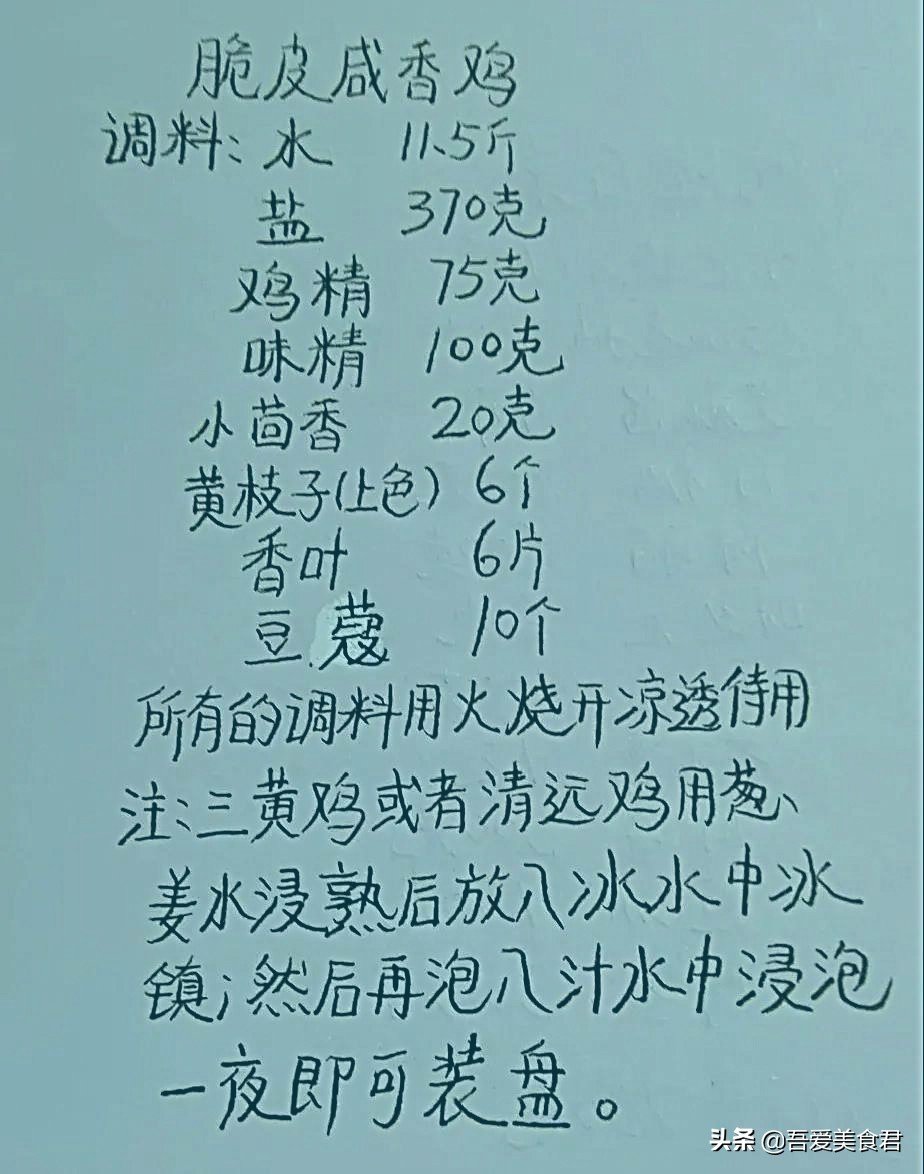 脆皮咸香鸡
调料:水 11.5斤
盐 370克
鸡精 75克
味精 100克
小茴香 20克
黄枝子(上色) 6个
香叶 6片
豆蔻 10个
所有的调料用火烧开凉透待用
注:三黄鸡或者清远鸡用葱、
姜水浸熟后放入冰水中冰
镇;然后再泡入汁水中浸泡
一夜即可装盘。
头条 @吾爱美食君